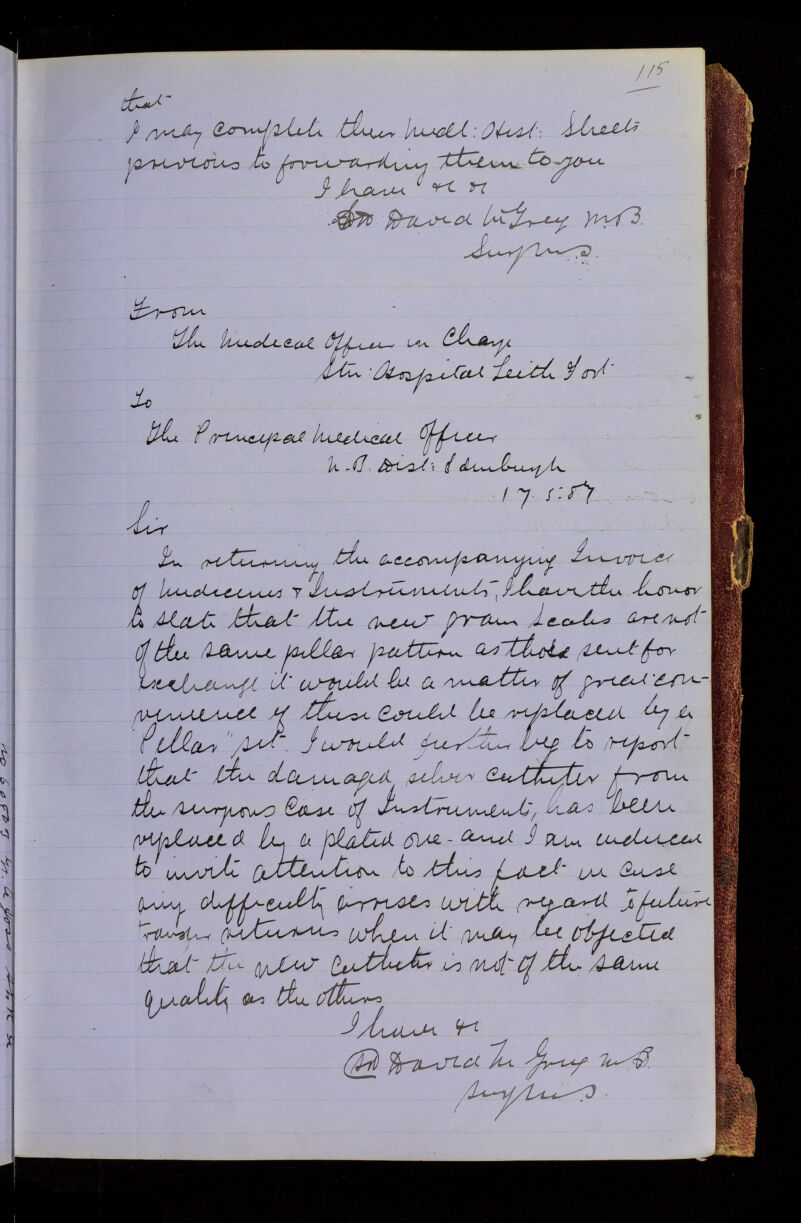 115
that
I may complete their Medl: Hist: Sheets
previous to forwarding them to you
I have &c &c
Sd David W Grey M.B.
Surg M.S.
From
The Medical Officer in Charge
Stn: Hospital Leith Fort
To
The Principal Medical Officer
N.B. Dist: Edinburgh
17.5.87
Sir
In returning the accompanying Invoice
of Medicines & Instruments, I have the honor
to state that the new grain scales are not
of the same pillar pattern as those sent for
exchange it would be a matter of great con-
venience if these could be replaced by a
"Pillar" set. I would further beg to report
that the damaged silver catheter from
the surgeons Case of Instruments, has been
replaced by a plated one - and I am induced
to invite attention to this fact in case
any difficulty arrises with regard to future
transfer returns when it may be objected
that the new catheter is not of the same
quality as the others
I have &c
Sd David W Grey M.B.
Surg M.S.